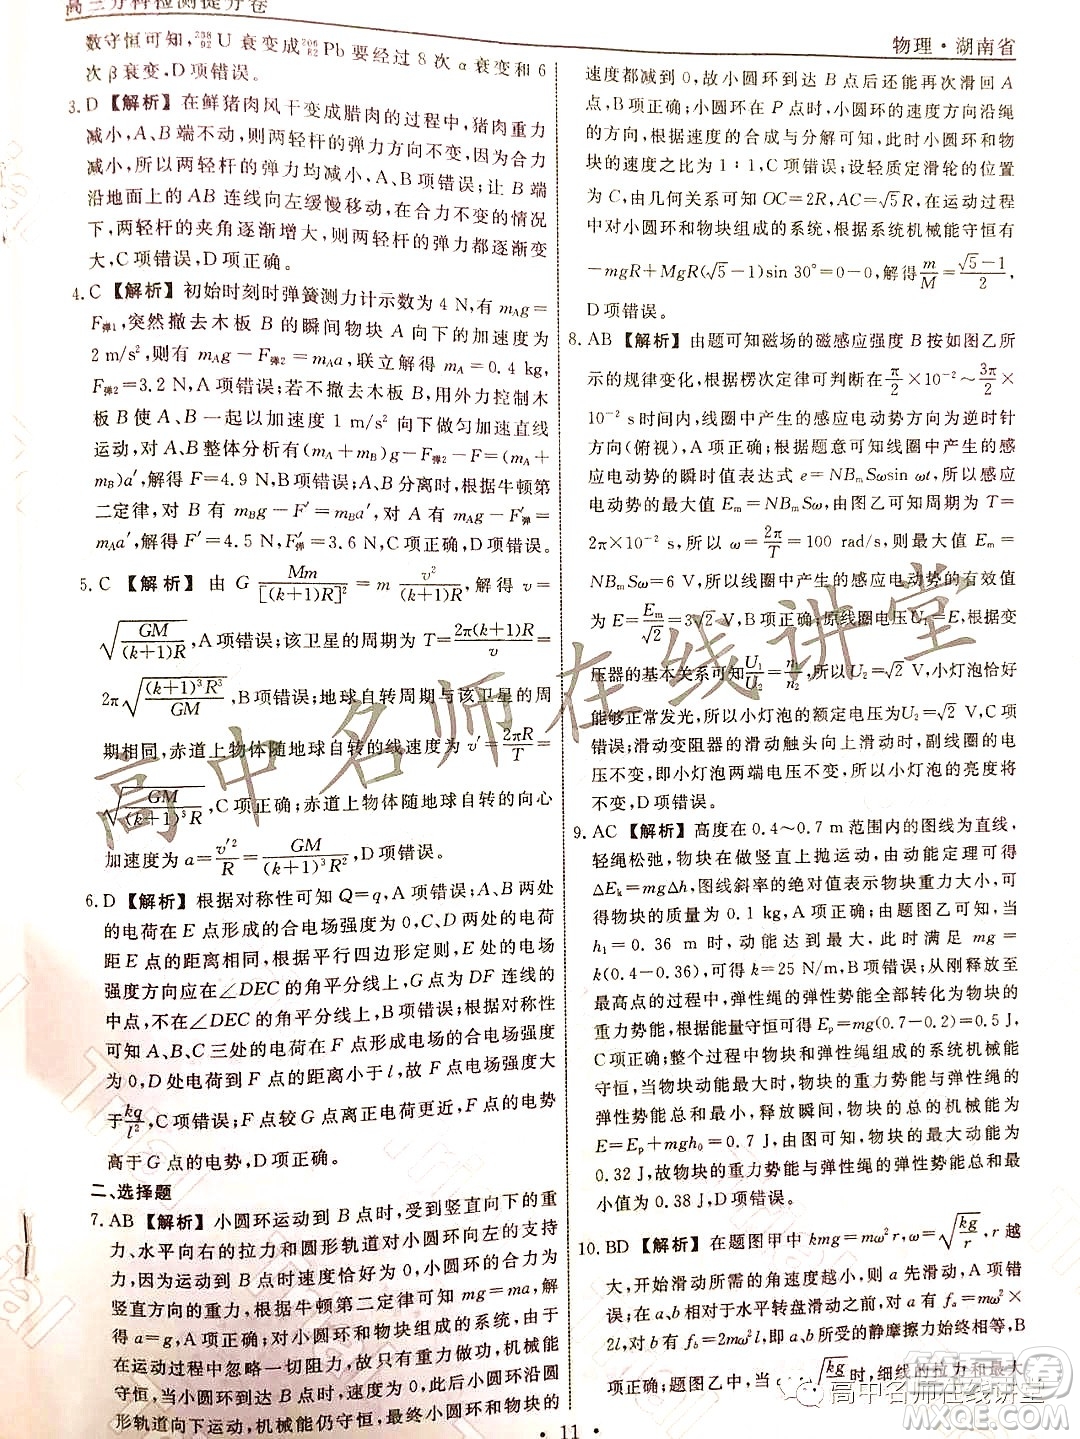 高三分科检测提分卷
物理·湖南省
数守恒可知,²³⁸₉₂U 衰变成²⁰⁶₈₂Pb 要经过 8 次 α 衰变和 6
次 β 衰变,D 项错误。
3. D 【解析】在鲜猪肉风干变成腊肉的过程中,猪肉重力
减小,A、B 端不动,则两轻杆的弹力方向不变,因为合力
减小,所以两轻杆的弹力均减小,A、B 项错误;让 B 端
沿地面上的 AB 连线向左缓慢移动,在合力不变的情况
下,两轻杆的夹角逐渐增大,则两轻杆的弹力都逐渐变
大,C 项错误,D 项正确。
4. C 【解析】初始时刻时弹簧测力计示数为 4 N,有 m_A g=
F弹1,突然撤去木板 B 的瞬间物块 A 向下的加速度为
2 m/s²,则有 m_A g－F弹2=m_A a,联立解得 m_A=0.4 kg,
F弹2=3.2 N,A 项错误;若不撤去木板 B,用手控制木
板 B 使 A、B 一起以加速度 1 m/s² 向下做匀加速直线
运动,对 A、B 整体分析有(m_A+m_B)g－F=(m_A+
m_B)a′,解得 F=4.9 N,B 项错误;A、B 分离,根据牛顿第
二定律,对 B 有 m_B g－F′=m_B a′,对 A 有 m_A g－F′弹=
m_A a′,解得 F′=4.5 N,F′弹=3.6 N,C 项正确,D 项错误。
5. C 【解析】由 G Mm/[(k+1)R]²=m v²/(k+1)R,解得 v=
√(GM/(k+1)R),A 项错误;该卫星的周期为 T=2π(k+1)R/v=
2π√((k+1)³R³/GM),B 项错误;地球自转周期与该卫星的周
期相同,赤道上物体随地球自转的线速度为 v′=2πR/T=
√(GM/(k+1)³R),C 项正确;赤道上物体随地球自转的向心
加速度为 a=v′²/R=GM/(k+1)³R²,D 项错误。
6. D 【解析】根据对称性可知 Q=q,A 项错误;A、B 两处
的电荷在 E 点形成的合电场强度为0,C、D 两处的电荷
距 E 点的距离相同,根据平行四边形定则,E 点的电场
强度方向应在∠DEC 的角平分线上,G 点为 DF 连线的
中点,不在∠DEC 的角平分线上,B 项错误;根据对称性
可知 A、B、C 三处的电荷在 F 点形成的合电场强度
为 0,D 处电荷到 F 点的距离小于 l,故 F 点的电场强度大
于kq/l²,C 项错误;F 点较 G 点离正电荷更近,F 点的电势
高于 G 点的电势,D 项正确。
二、选择题
7. AB 【解析】小圆环运动到 B 点时,受到竖直向下的重
力、水平向右的拉力和圆形轨道对小圆环向左的支持
力,因为运动到 B 点时速度为 0,小圆环受到的合力为
竖直方向的重力,根据牛顿第二定律可知 mg=ma,解
得 a=g,A 项正确;对小圆环和物块组成的系统,由于
在运动过程中忽略一切阻力,故小圆环和物块的机械能
守恒,当小圆环过 B 点后继续运动,最后小圆环沿圆
形轨道向下运动,机械能仍守恒,最终小圆环和物块的
速度都减为0,故小圆环到达 B 点后还能再次滑回 A
点,B 项正确;小圆环在 P 点时,小圆环的速度方向沿绳
的方向,根据速度的合成与分解可知,此时小圆环和物
块的速度之比为 1∶1,C 项错误;设轻质定滑轮的位置
为 C,由几何关系可知 OC=2R,AC=√5R,在运动过程
中对小圆环和物块组成的系统,根据系统机械能守恒有
－mgR+MgR(√5－1)sin 30°=0－0,解得m/M=(√5－1)/2,
D 项错误。
8. AB 【解析】由题可知磁场的磁感应强度 B 按如图乙所
示的规律变化,根据楞次定律可判断在π/2×10⁻²～3π/2×
10⁻² s 时间内,线圈中产生的感应电动势方向为逆时针
方向(俯视),A 项正确;根据题意可知线圈中产生的感
应电动势的瞬时值表达式 e=NB_mSωsin ωt,所以感应
电动势的最大值 E_m=NB_mSω,由图乙可知周期为 T=
2π×10⁻² s,所以 ω=2π/T=100 rad/s,电动势最大值 E_m=
NB_mSω=6 V,则线圈中产生的感应电动势的有效值
为 E=E_m/√2=3√2 V,B 项正确;原线圈电压U₁=E,根据变
压器的基本关系可知U₁/U₂=n₁/n₂,解得U₂=√2 V,小灯泡恰好
能够正常发光,所以小灯泡的额定电压为U₂=√2 V,C 项
错误;滑动变阻器的滑动触头向上滑动时,副线圈的电
压不变,即小灯泡两端电压不变,所以小灯泡的亮度将
不变,D 项错误。
9. AC 【解析】高度在 0.4～0.7 m 范围内的图线为直线,
轻绳松弛,物块在做竖直上抛运动,由动能定理可得
ΔE_k=mgΔh,图线斜率的绝对值表示物块重力大小,可
得物块的质量为 0.1 kg,A 项正确;由题图乙可知,当
h₁=0.36 m 时,动能达到最大,此时满足 mg=
k(0.4-0.36),可得 k=25 N/m,B 项错误;从刚释放至
最高点的过程中,弹性绳的弹性势能全部转化为物块的
重力势能,根据能量守恒可得 E_p=mg(0.7-0.2)=0.5 J,
C 项正确;整个过程中物块和弹性绳组成的系统机械能
守恒,故物块动能最大时,物块的重力势能与弹性绳的
弹性势能总和最小,释放瞬间,物块的总机械能为
E=E_p+mgh₀=0.7 J,由图乙可知物块的最大动能为
0.32 J,故物块的重力势能与弹性绳的弹性势能总和最
小值为 0.38 J,D 项错误。
10. BD 【解析】在题图甲中 kmg=mω²r,ω=√(kg/r),r 越
大,开始滑动所需的角速度越小,故 a 先滑动,A 项错
误;在 a、b 相对于水平转盘滑动之前,对 a 有 f_a=mω²·
2l,对 b 有 f_b=2mω²l,则 a、b 所受的静摩擦力始终相等,B
高中名师在线讲堂
答案圈
高中名师在线讲堂
· 11 ·